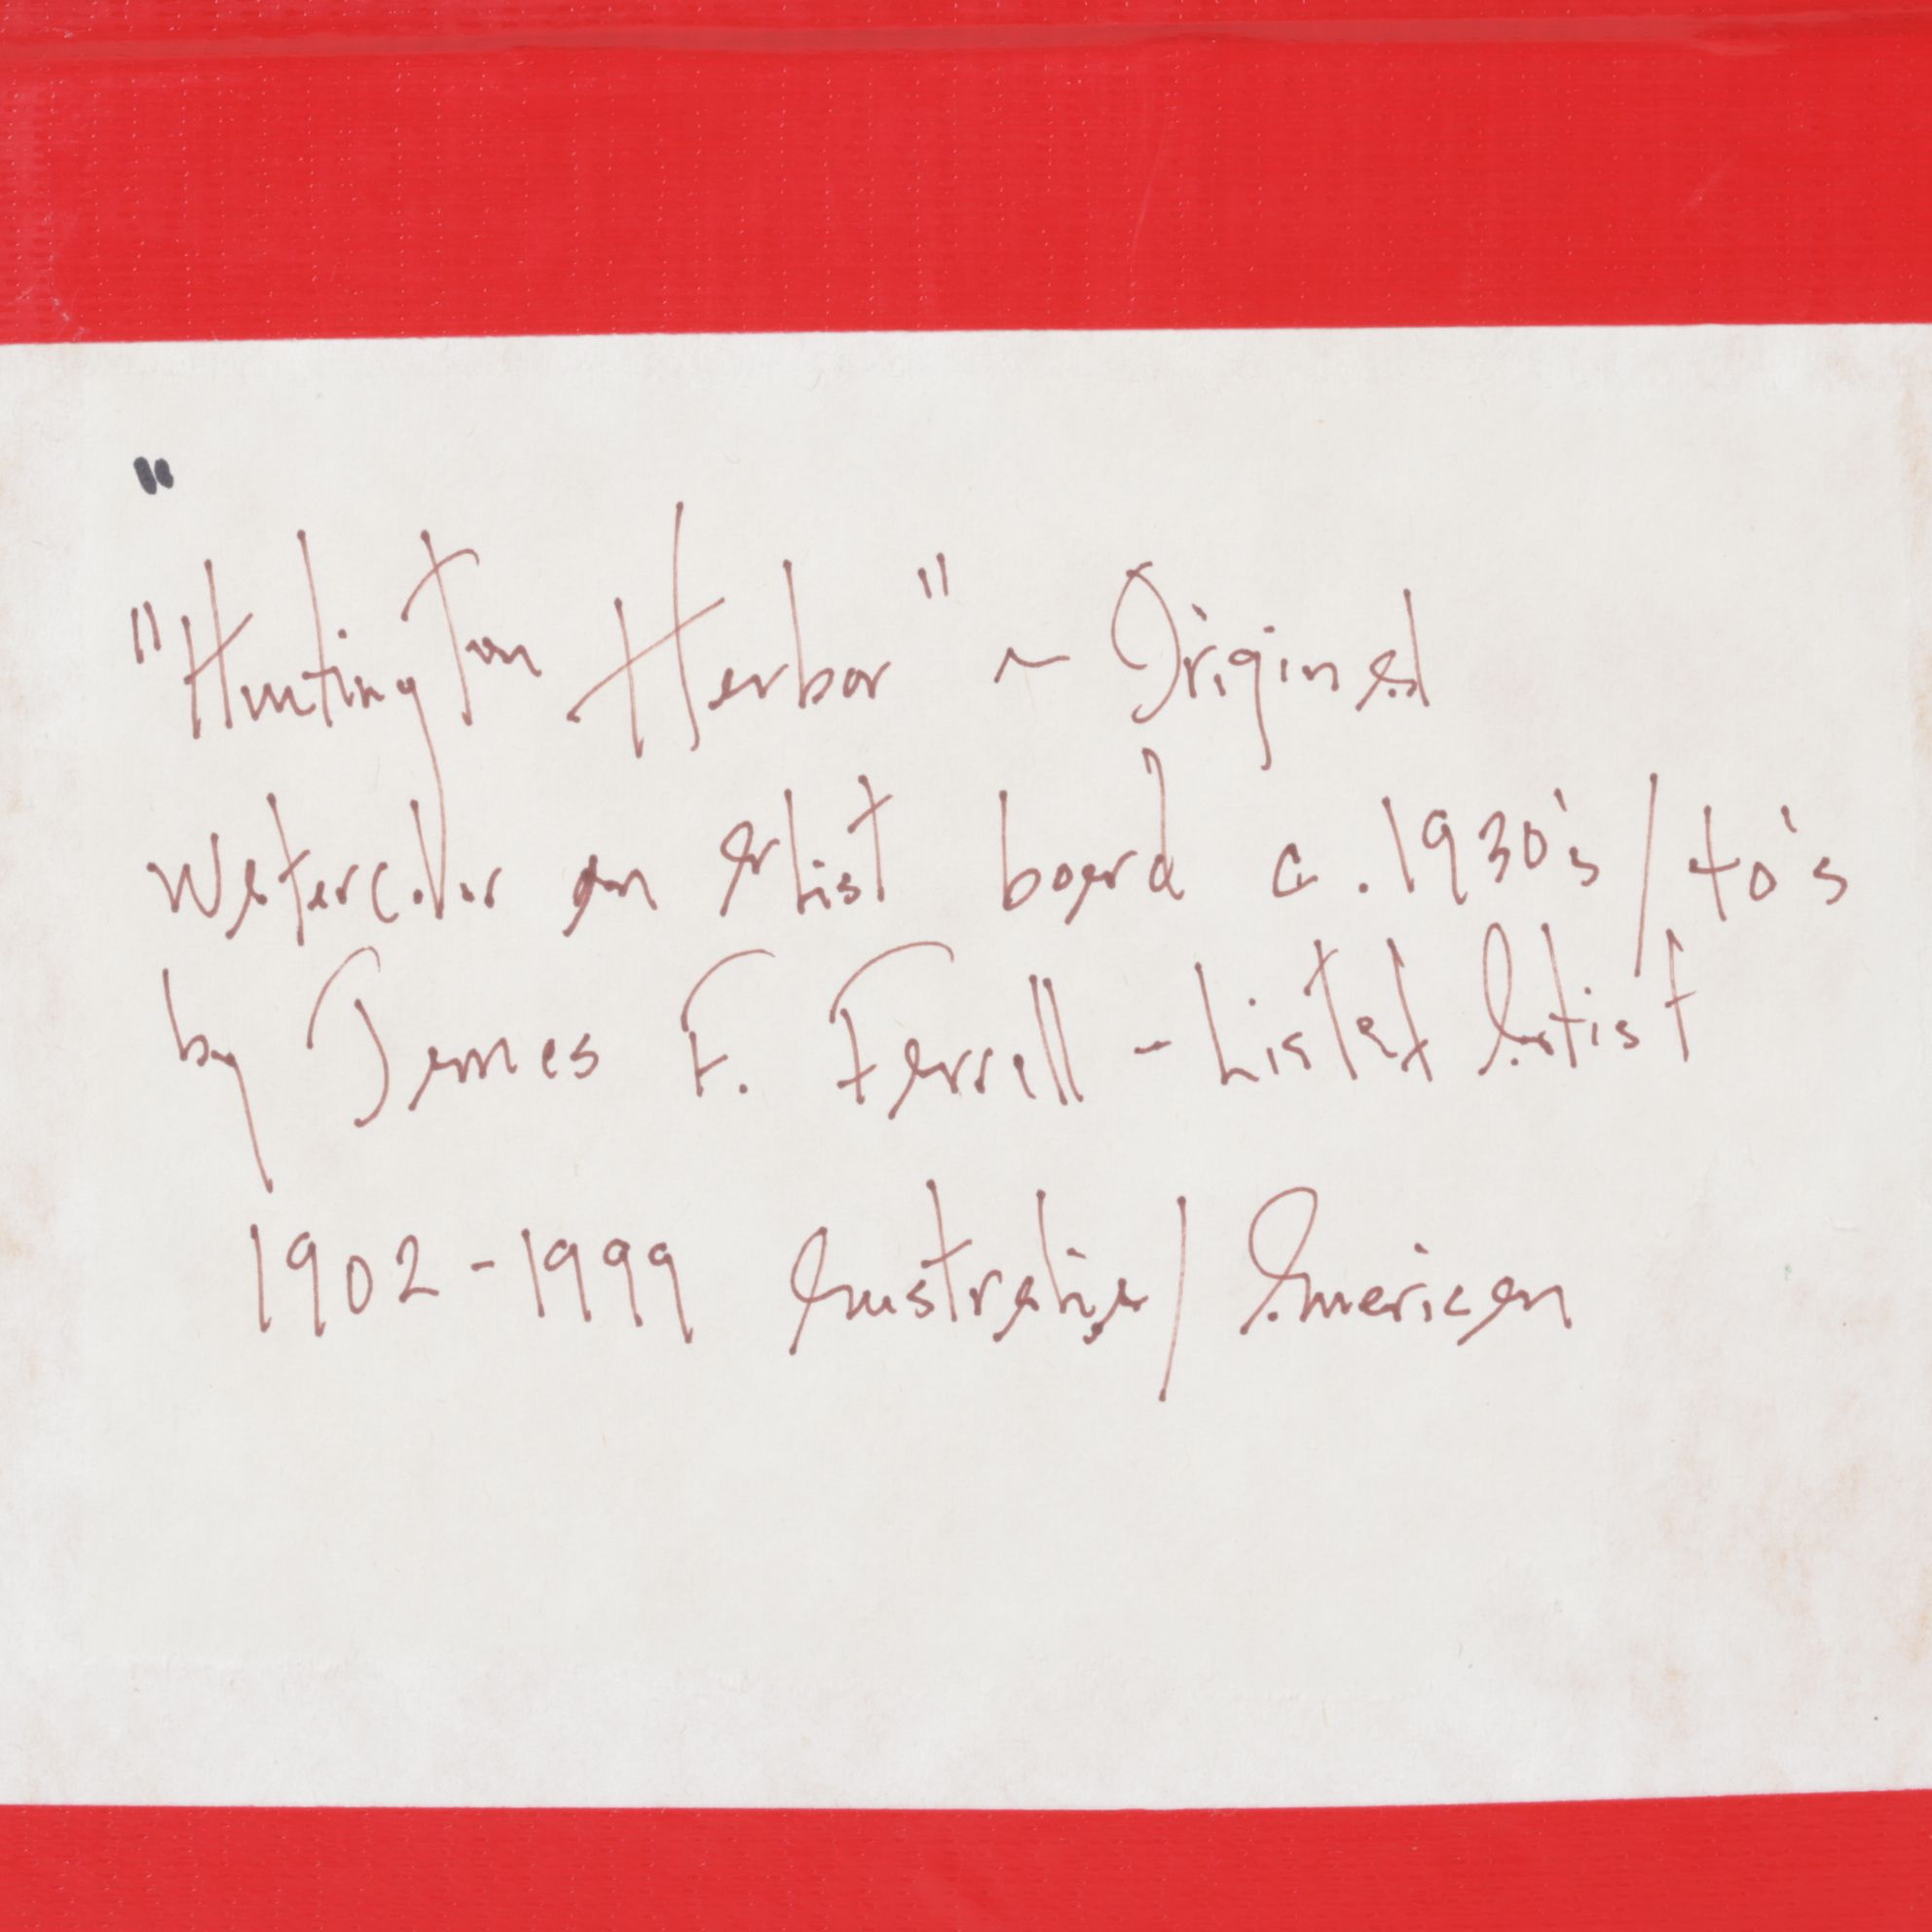 "
"Huntington Harbor" ~ Original
Watercolor on artist board c. 1930's / 40's
by James F. Farrell - Listed Artist
1902 - 1999 Australia / American